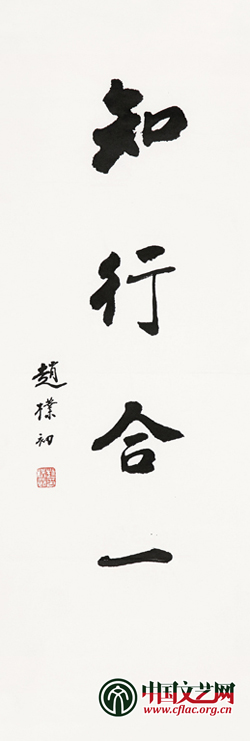 知行合一
趙樸初
中国文艺网
www.cflac.org.cn